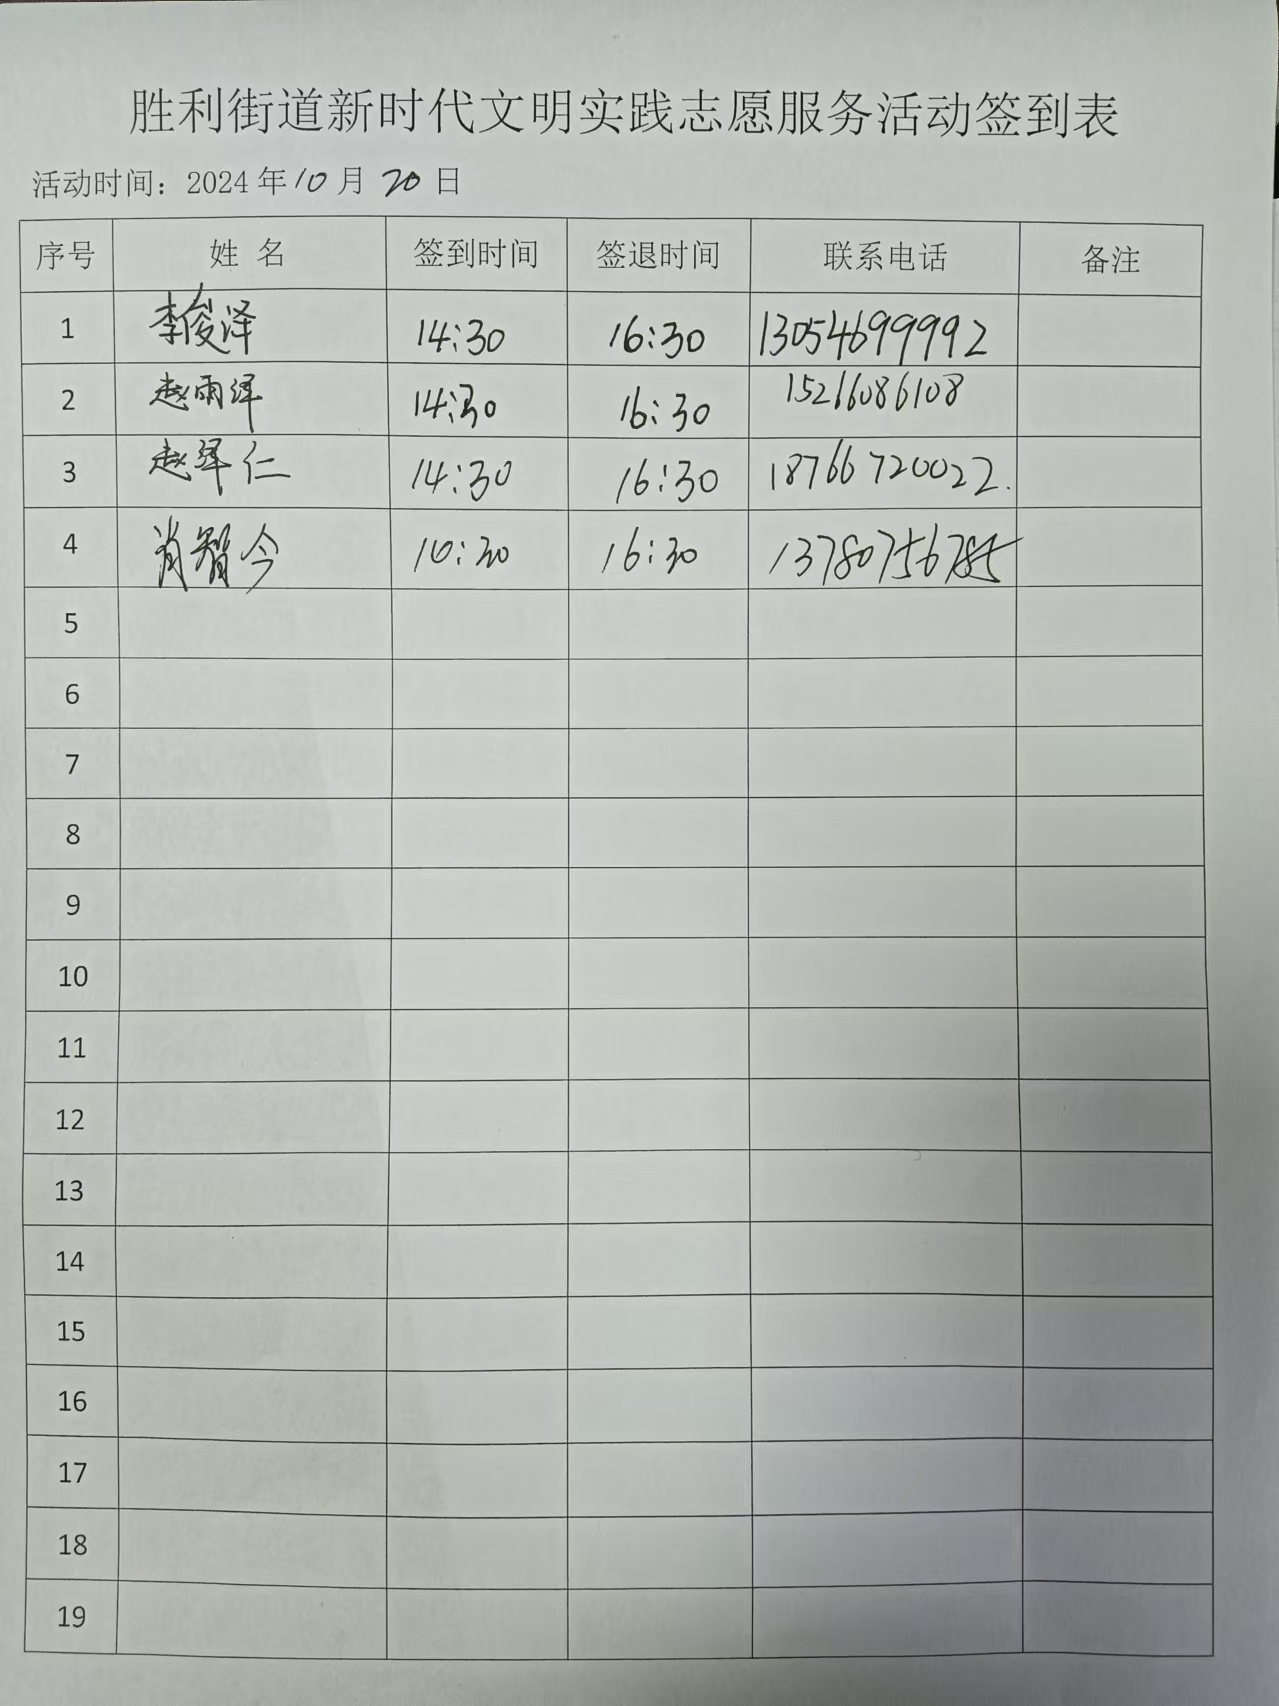 胜利街道新时代文明实践志愿服务活动签到表
活动时间：2024年10月20日
序号 姓 名 签到时间 签退时间 联系电话 备注
1 李俊泽 14:30 16:30 13054699992
2 赵雨泽 14:30 16:30 15266086108
3 赵军仁 14:30 16:30 18766720022.
4 肖智今 16:30 13780756785
5
6
7
8
9
10
11
12
13
14
15
16
17
18
19